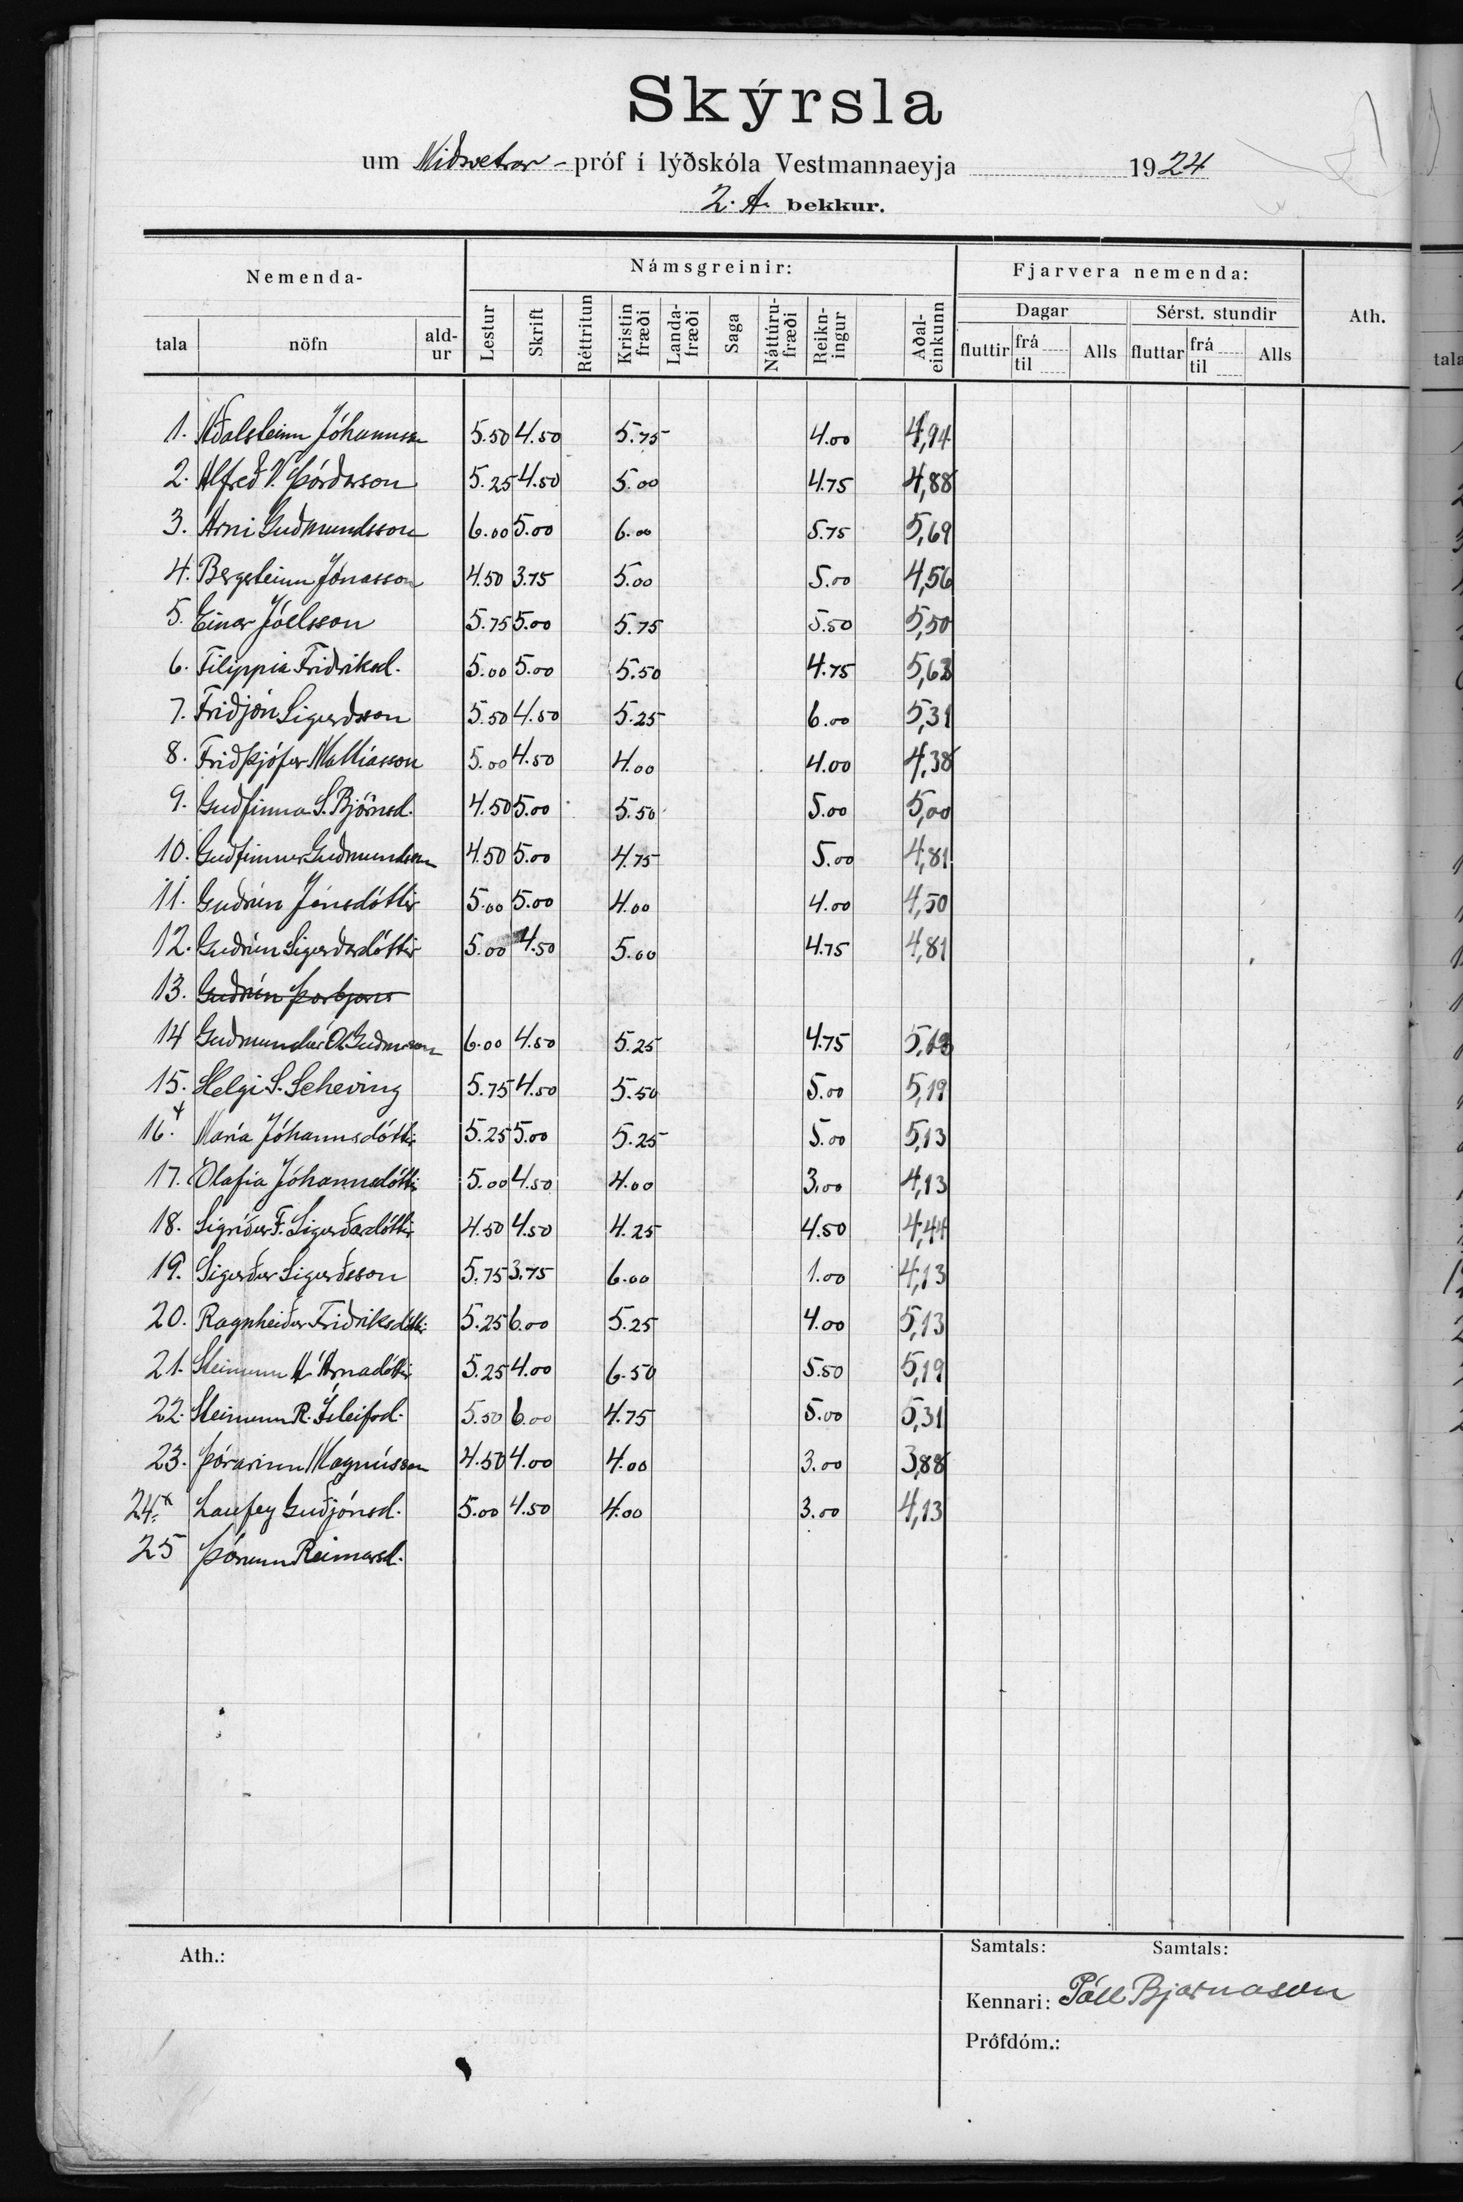 Skýrsla
um Miðsvetrar-próf í lýðskóla Vestmannaeyja 1924
2. A. bekkur.
Nemenda- Námsgreinir: Fjarvera nemenda: Ath.
tala nöfn ald-ur Lestur Skrift Réttritun Kristin fræði Landa-fræði Saga Náttúru-fræði Reikn-ingur Aðal-einkunn Dagar Sérst. stundir
fluttir frá til Alls fluttar frá til Alls
1. Aðalsteinn Jóhannsson 5.50 4.50 5.75 4.00 4,94
2. Alfreð V. Þórðarson 5.25 4.50 5.00 4.75 4,88
3. Árni Guðmundsson 6.00 5.00 6.00 5.75 5,69
4. Bergsteinn Jónasson 4.50 3.75 5.00 5.00 4,56
5. Einar Jóelsson 5.75 5.00 5.75 5.50 5,50
6. Filippia Friðriksd. 5.00 5.00 5.50 4.75 5,63
7. Friðjón Sigurðsson 5.50 4.50 5.25 6.00 5,31
8. Friðþjófur Mattíasson 5.00 4.50 4.00 4.00 4,38
9. Guðfinna S. Björnsd. 4.50 5.00 5.50 5.00 5,00
10. Guðfinnur Guðmundsson 4.50 5.00 4.75 5.00 4,81
11. Guðrún Jónsdóttir 5.00 5.00 4.00 4.00 4,50
12. Guðrún Sigurðardóttir 5.00 4.50 5.00 4.75 4,81
13. Guðrún Þorbjarn
14 Guðmundur Ó. Guðmsson 6.00 4.50 5.25 4.75 5,13
15. Helgi S. Scheving 5.75 4.50 5.50 5.00 5,19
16. x María Jóhannsdóttir 5.25 5.00 5.25 5.00 5,13
17. Ólafía Jóhannsdóttir 5.00 4.50 4.00 3.00 4,13
18. Sigríður F. Sigurðardóttir 4.50 4.50 4.25 4.50 4,44
19. Sigurður Sigurðsson 5.75 3.75 6.00 1.00 4,13
20. Ragnheiður Friðriksdóttir 5.25 6.00 5.25 4.00 5,13
21. Steinunn Á Árnadóttir 5.25 4.00 6.50 5.50 5,19
22. Steinunn R. Ísleifsd. 5.50 6.00 4.75 5.00 5,31
23. Þórarinn Magnússon 4.50 4.00 4.00 3.00 3,88
24. x Laufey Guðjónsd. 5.00 4.50 4.00 3.00 4,13
25 Þórunn Reimarsd.
Ath.: Samtals: Samtals:
Kennari: Páll Bjarnason
Prófdóm.: